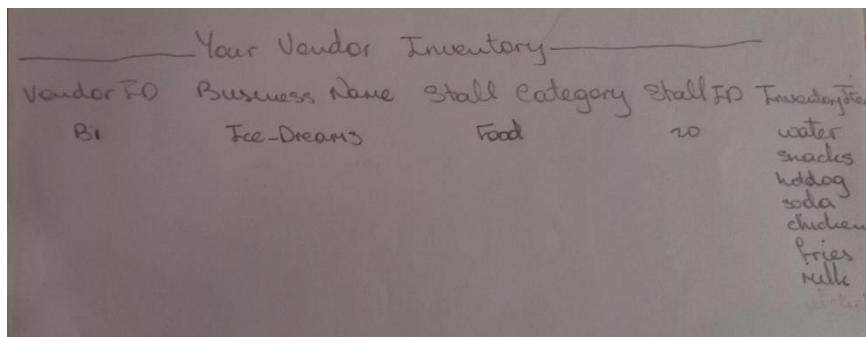 Your Vendor Inventory
Vendor ID Business Name Stall Category Stall ID Inventory Ite
B1 Ice-Dreams Food 20 water
snacks
hotdog
soda
chicken
fries
milk